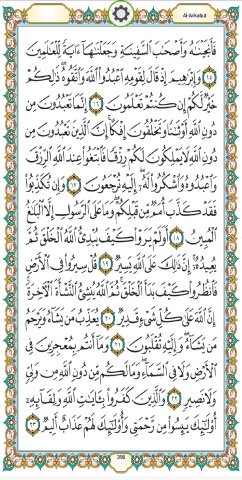 Al-Ankabut
فَأَنجَيْنَٰهُ وَأَصْحَٰبَ ٱلسَّفِينَةِ وَجَعَلْنَٰهَآ ءَايَةً لِّلْعَٰلَمِينَ
١٥ وَإِبْرَٰهِيمَ إِذْ قَالَ لِقَوْمِهِ ٱعْبُدُوا۟ ٱللَّهَ وَٱتَّقُوهُ ۖ ذَٰلِكُمْ
خَيْرٌ لَّكُمْ إِن كُنتُمْ تَعْلَمُونَ ١٦ إِنَّمَا تَعْبُدُونَ مِن
دُونِ ٱللَّهِ أَوْثَٰنًا وَتَخْلُقُونَ إِفْكًا ۚ إِنَّ ٱلَّذِينَ تَعْبُدُونَ مِن
دُونِ ٱللَّهِ لَا يَمْلِكُونَ لَكُمْ رِزْقًا فَٱبْتَغُوا۟ عِندَ ٱللَّهِ ٱلرِّزْقَ
وَٱعْبُدُوهُ وَٱشْكُرُوا۟ لَهُۥٓ ۖ إِلَيْهِ تُرْجَعُونَ ١٧ وَإِن تُكَذِّبُوا۟
فَقَدْ كَذَّبَ أُمَمٌ مِّن قَبْلِكُمْ ۖ وَمَا عَلَى ٱلرَّسُولِ إِلَّا ٱلْبَلَٰغُ
ٱلْمُبِينُ ١٨ أَوَلَمْ يَرَوْا۟ كَيْفَ يُبْدِئُ ٱللَّهُ ٱلْخَلْقَ ثُمَّ
يُعِيدُهُۥٓ ۚ إِنَّ ذَٰلِكَ عَلَى ٱللَّهِ يَسِيرٌ ١٩ قُلْ سِيرُوا۟ فِى ٱلْأَرْضِ
فَٱنظُرُوا۟ كَيْفَ بَدَأَ ٱلْخَلْقَ ۚ ثُمَّ ٱللَّهُ يُنشِئُ ٱلنَّشْأَةَ ٱلْءَاخِرَةَ ۚ
إِنَّ ٱللَّهَ عَلَىٰ كُلِّ شَىْءٍ قَدِيرٌ ٢٠ يُعَذِّبُ مَن يَشَآءُ وَيَرْحَمُ
مَن يَشَآءُ ۖ وَإِلَيْهِ تُقْلَبُونَ ٢١ وَمَآ أَنتُم بِمُعْجِزِينَ فِى
ٱلْأَرْضِ وَلَا فِى ٱلسَّمَآءِ ۖ وَمَا لَكُم مِّن دُونِ ٱللَّهِ مِن وَلِىٍّ
وَلَا نَصِيرٍ ٢٢ وَٱلَّذِينَ كَفَرُوا۟ بِـَٔايَٰتِ ٱللَّهِ وَلِقَآئِهِۦٓ
أُو۟لَٰٓئِكَ يَئِسُوا۟ مِن رَّحْمَتِى وَأُو۟لَٰٓئِكَ لَهُمْ عَذَابٌ أَلِيمٌ ٢٣
398